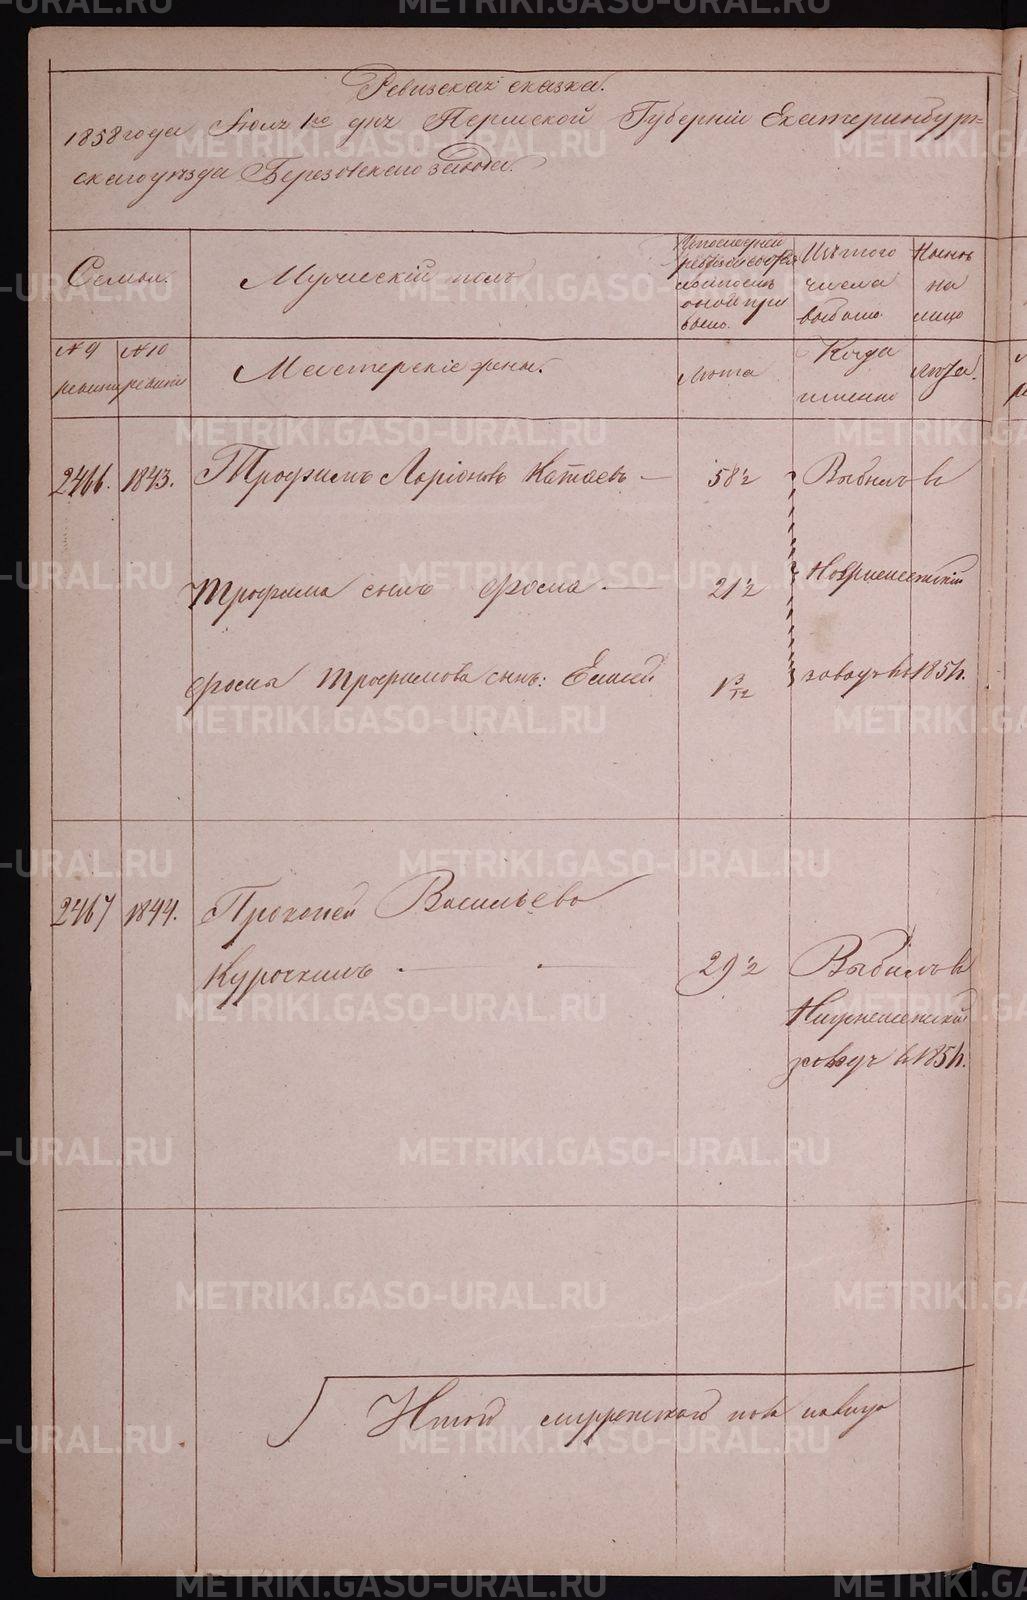 Ревизская сказка.
1858 года Июля 1го дня Пермской Губерніи Екатеринбург-
скаго уезда Березовскаго завода.
Семьи.
Мужескій полъ
По последней
ревизіи состояло
и после
оной при
было.
Изъ того
числа
выбыло
Ныне
на
лицо
№ 9
ревизіи
№ 10
ревизіи
Мастерскіе жены.
Лета
Когда
именно
Лета.
2466. 1843. Трофимъ Ларіоновъ Катаевъ — 58½ Выбылъ въ
Трофима сынъ Фома — 21½
Фома Трофимова сынъ: 1 3/12 заводъ въ 1851 г.
2467 1844. Прокопей Васильевъ
Курочкинъ — — 29½ Выбылъ въ
Нижнеисетскій
заводъ въ 1851 г.
Итого мужескаго пола налицо
METRIKI.GASO-URAL.RU